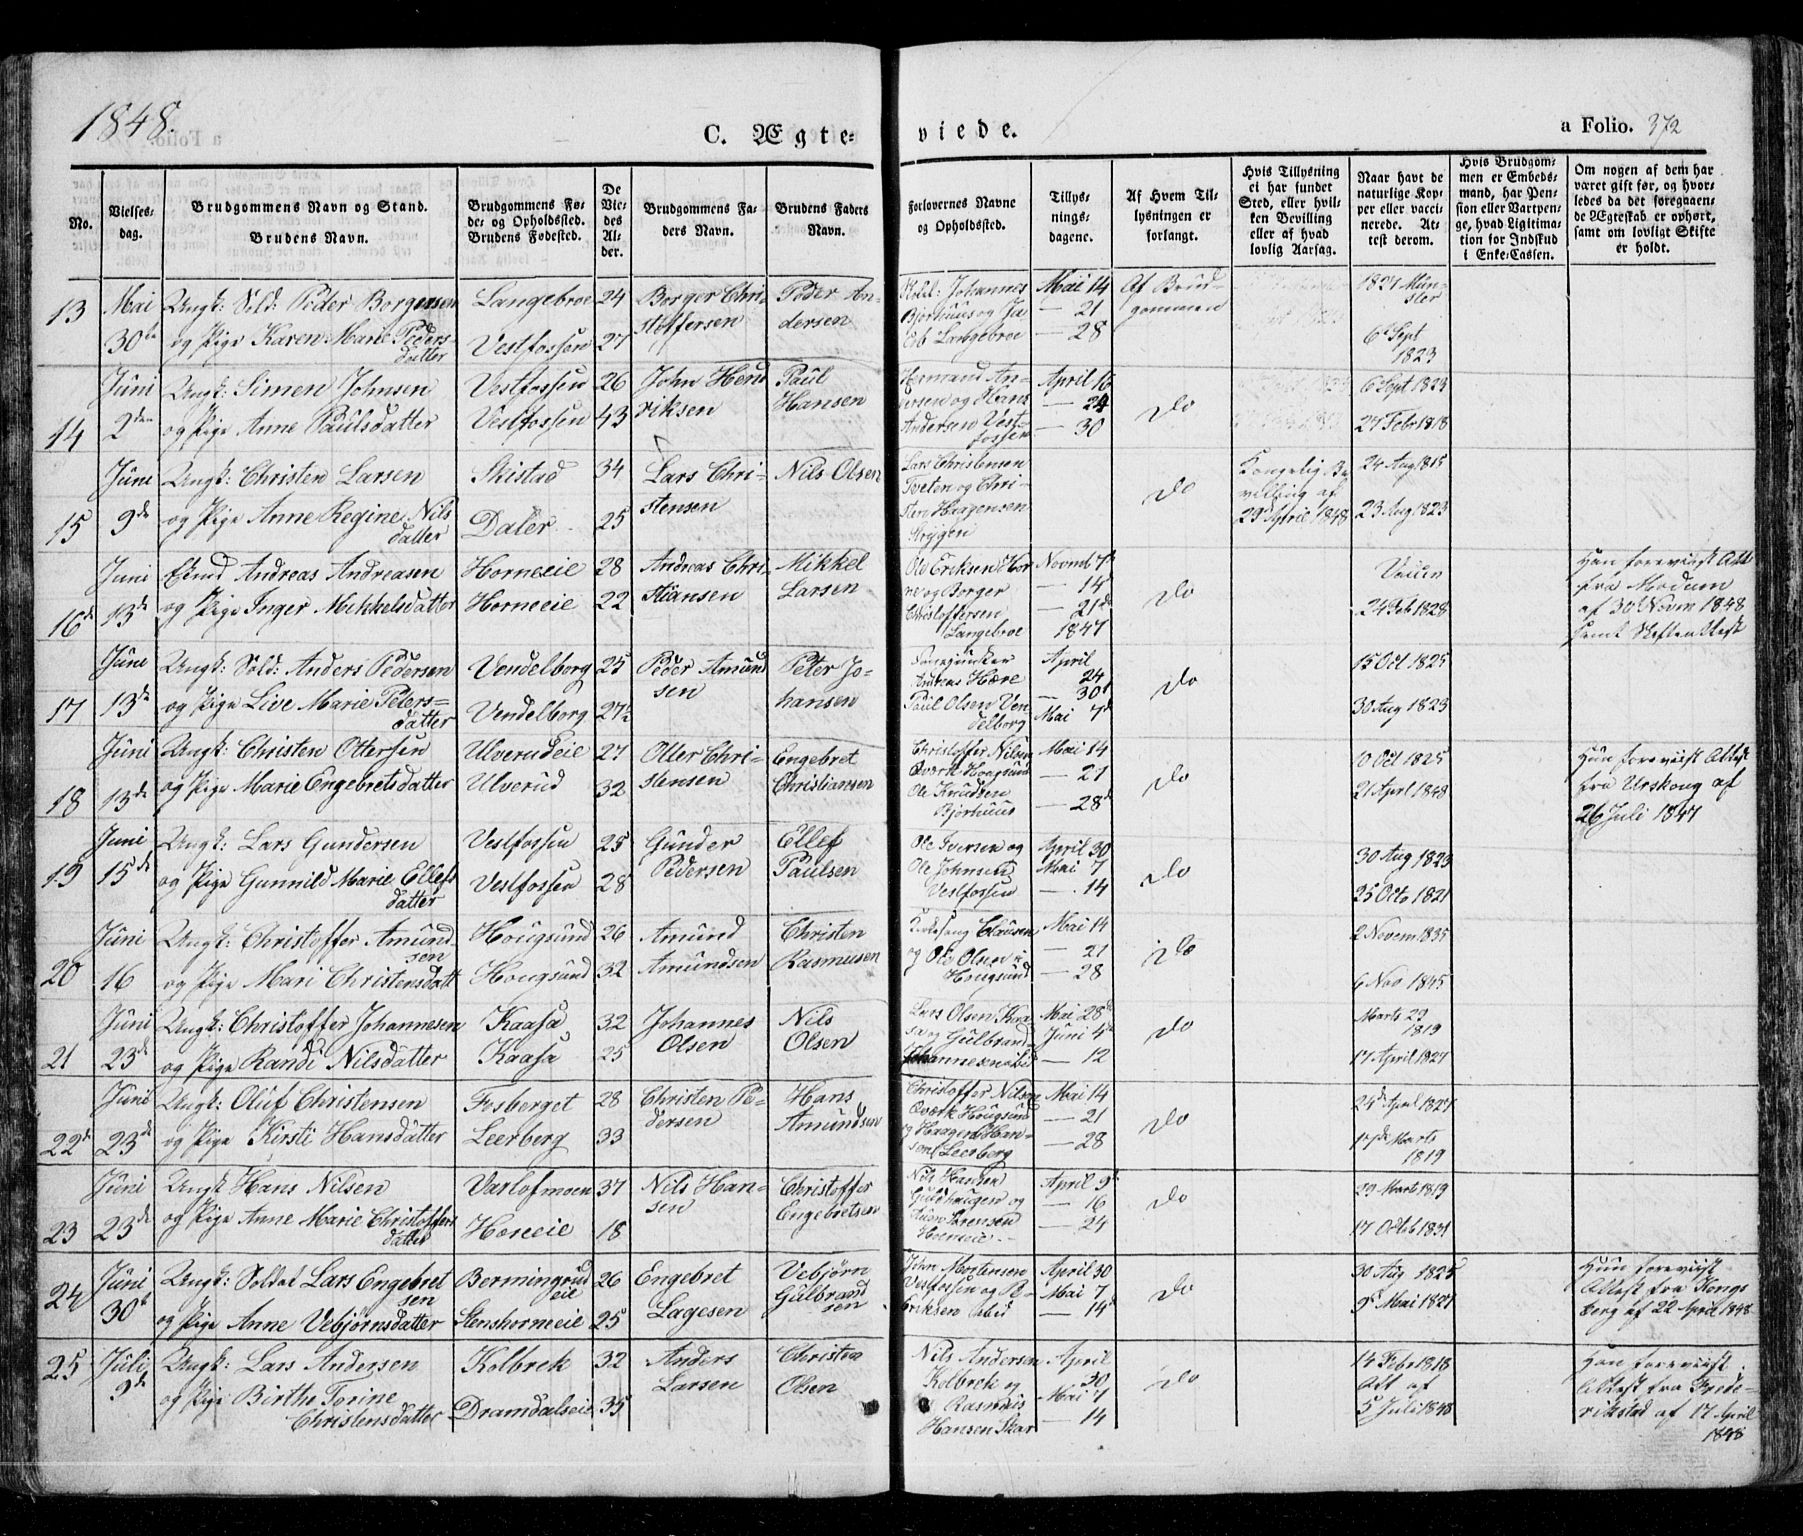 1848.
C. Ægte-
viede.
a Folio. 372
No.
Vielses-
dag.
Brudgommens Navn og Stand.
Brudens Navn.
Brudgommens Fø-
de- og Opholdssted.
Brudens Fødested.
De
Vie-
des
Al-
der.
Brudgommens Fa-
ders Navn.
Brudens Faders
Navn.
Forlovernes Navne
og Opholdssted.
Tillys-
nings-
dagene.
Af Hvem Til-
lysningen er
forlangt.
Hvis Tillysning
ei har fundet
Sted, eller hvil-
ken Bevilling
eller af hvad
lovlig Aarsag.
Naar havt de
naturlige Kop-
per eller vacci-
nerede. At-
test derom.
Hvis Brudgom-
men er Embeds-
mand, har Pen-
sion eller Vartpen-
ge, hvad Ligitima-
tion for Indskud
i Enke-Cassen.
Om nogen af dem har
været gift før, og hvor-
ledes da det foregaaen-
de Ægteskab er ophørt,
samt om lovligt Skifte
er holdt.
13 Mai 30te
Ungk: Sold: Peder Borgersen
og Pige Karen Marie Peders
datter
Langebroe 24
Vestfossen 27
Borger Chri-
stoffersen
Peder An-
dersen
Johannes
Bjørhuus og Ja
cob Langebroe
Mai 14
— 21
— 28
Af Brud-
gommen
1827 Mün-
ster
6 Sept
1823
14 Juni 2den
Ungk: Simen Johnsen
og Pige Anne Paulsdatter
Vestfossen 26
Vestfossen 43
John Hend
riksen
Paul
Hansen
Hermand An-
dersen og Hans
Andersen Vest-
fossen
April 16
— 24
— 30
Do
6 Sept 1823
27 Febr 1818
15 Juni 9de
Ungk: Christen Larsen
og Pige Anne Regine Nils
datter
Skistad 34
Daler 25
Lars Chri-
stensen
Nils Olsen
Lars Christensen
Tveten og Chri-
sten Haagensen
Do
Kongelig Be
villing af
29 April 1848
24 Aug 1815
23 Aug 1823
16de Juni 13de
Andreas Andreasen
og Pige Inger Mikkelsdatter
Horneeie 28
Horneeie 22
Andreas Chri-
stiansen
Mikkel
Larsen
Ole Eriksen Hor
ne og Borger
Christoffersen
Langebroe
Novmb 7de
— 14de
— 21de
1847
Do
24 Feb 1828
Han foreviist Att
fra Modum
af 30 Novm 1848
samt Skifteattest
17 Juni 13de
Ungk: Sold: Anders Pedersen
og Pige Live Marie Peters-
datter
Vendelborg 25
Vendelborg 27½
Peder Amund
sen
Peter Jo-
hansen
Andreas Høre
Paul Olsen Ven
delborg
April
24
— 30
Mai 7de
Do
15 Oct 1825
30 Aug 1823
18 Juni 13de
Ungk: Christen Ottersen
og Pige Marie Engebretsdatter
Ulverudeie 27
Ulverud 32
Otter Chri-
stensen
Engebret
Christiansen
Christoffer Nilsen
Qværk Hougsund
Ole Knudsen
Bjørhuus
Mai 14
— 21
— 28de
Do
10 Oct 1825
21 April 1848
Hun foreviist Attest
fra Urskoug af
26 Juli 1847
19 Juni 15de
Ungk: Lars Gundersen
og Pige Gunnild Marie Ellefs
datter
Vestfossen 25
Vestfossen 28
Gunder
Pedersen
Ellef
Paulsen
Ole Iversen og
Ole Johnsen
Vestfossen
April 30
Mai 7
— 14
Do
30 Aug 1823
25 Octo 1821
20 Juni 16
Ungk: Christoffer Amund
sen
og Pige Mari Christensdatt
Hougsund 26
Hougsund 32
Amund
Amundsen
Christen
Rasmusen
Clausen
og Ole Olsen i
Hougsund
Mai 14
— 21
— 28
Do
2 Novem 1835
6 Nov 1845
21 Juni 23de
Ungk: Christoffer Johannesen
og Pige Randi Nilsdatter
Kaasa 32
Kaasa 25
Johannes
Olsen
Nils
Olsen
Lars Olsen Kaa
sa og Gulbrand
Johannesen ibid
Mai 28de
Juni 4de
— 12
Do
Marts 29
1819
17 April 1827
22de Juni 23de
Ungk: Oluf Christensen
og Pige Kirsti Hansdatter
Fosberget 28
Leerberg 33
Christen Pe-
dersen
Hans
Amundsen
Christoffer Nilsen
Qværk Hougsund
og Haagen Han-
sen Leerberg
Mai 14
— 21
— 28
Do
24de April 1827
17de Marts
1819
23 Juni 23de
Ungk Hans Nilsen
og Pige Anne Marie Christoffers
datter
Varlofmoen 37
Horneeie 18
Nils Han-
sen
Christoffer
Engebretsen
Nils Hansen
Guldhaugen og
Sørensen
Horneeie
April 9de
— 16
— 24
Do
29 Marts 1819
17 Octob 1831
24 Juni 30te
Ungk: Soldat Lars Engebret
sen
og Pige Anne Vebjørnsdatter
Bermingrud
eie 26
Stenshorneeie 25
Engebret
Lagesen
Vebjørn
Gulbrand
sen
John Mortensen
Vestfossen og P-
Eriksen ibid
April 30
Mai 7
— 14de
Do
30 Aug 1825
9de Mai 1827
Hun foreviist
Attest fra Kongs
berg af 22 April 1848
25 Juli 9de
Ungk: Lars Andersen
og Pige Birthe Torine
Christensdatter
Kolbrek 32
Dramdalseie 35
Anders
Larsen
Christen
Olsen
Nils Andersen
Kolbrek og
Rasmus
Hansen Skar
April
30
Mai 7
— 14
Do
14 Febr 1818
Att af
5 Juli 1848
Han foreviist
Attest fra Frede-
rikstad af 17 April
1848